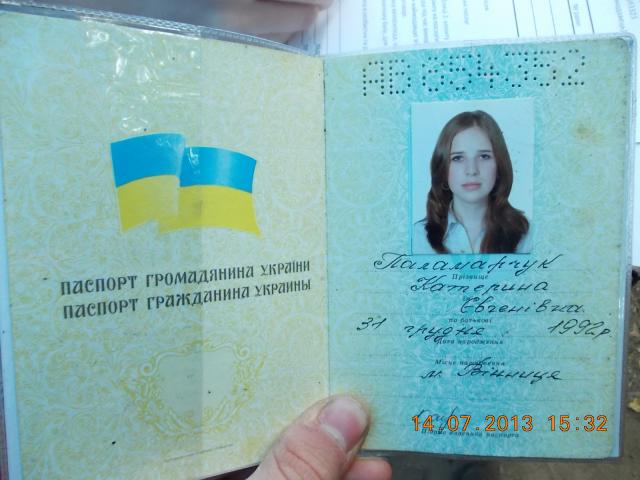 ПАСПОРТ ГРОМАДЯНИНА УКРАЇНИ
ПАСПОРТ ГРАЖДАНИНА УКРАИНЫ
АВ 854352
Паламарчук
Прізвище
Катерина
Євгенівна
по батькові
31 грудня 1992 р.
Дата народження
Місце народження
м. Вінниця
Підпис власника паспорта
14.07.2013 15:32